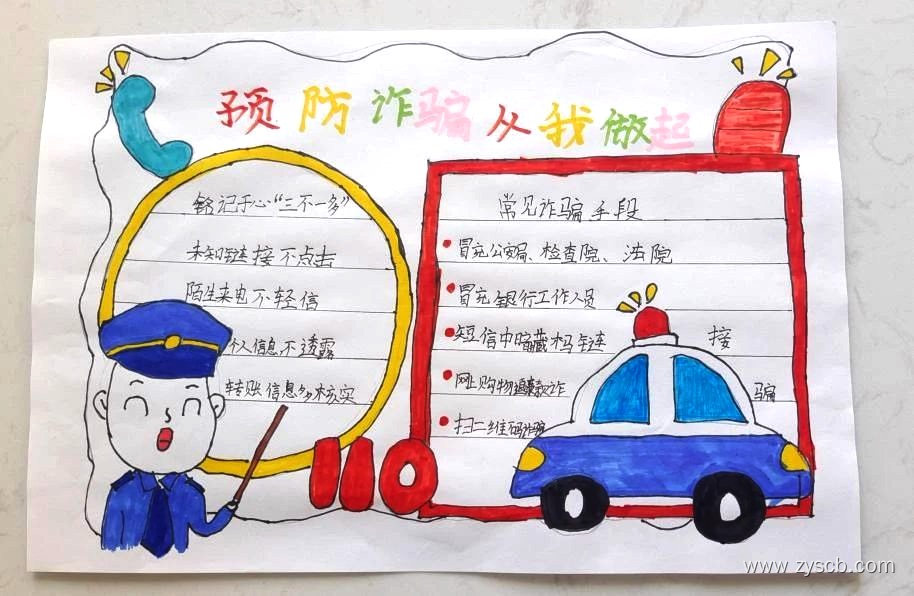 预防诈骗从我做起
铭记于心“三不一多”
未知链接不点击
陌生来电不轻信
个人信息不透露
转账信息多核实
常见诈骗手段
冒充公安局、检查院、法院
冒充银行工作人员
短信中暗藏木马链接
网上购物退款诈骗
扫二维码诈骗
110
www.zyscb.com